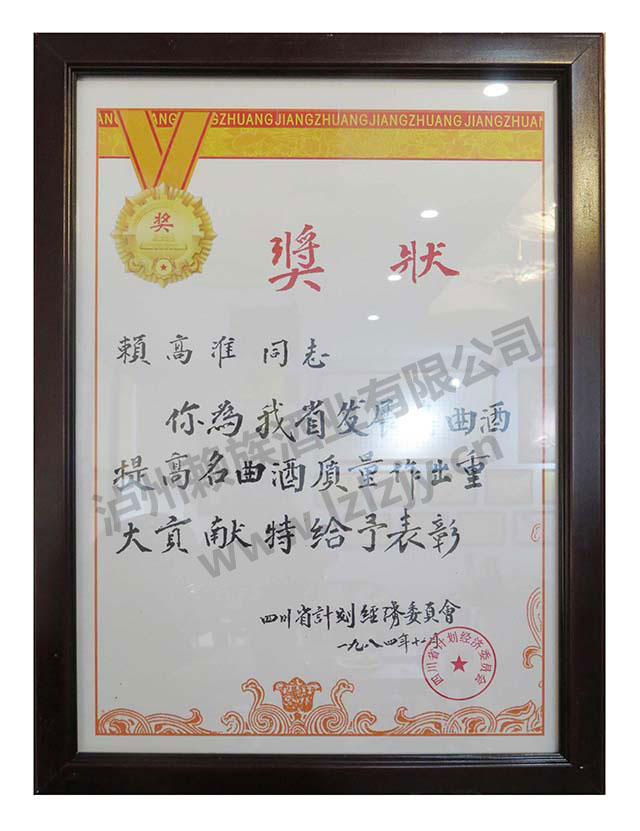 JIANGZHUANGJIANGZHUANGJIANGZHUANGJIANGZHUAN
奖
獎 狀
賴高淮 同志
你為我省发展名曲酒
提高名曲酒质量作出重
大贡献特给予表彰
四川省計划經济委員會
一九八四年十二月
四川省计划经济委员会
泸州赖族酒业有限公司
www.lzlzjy.cn